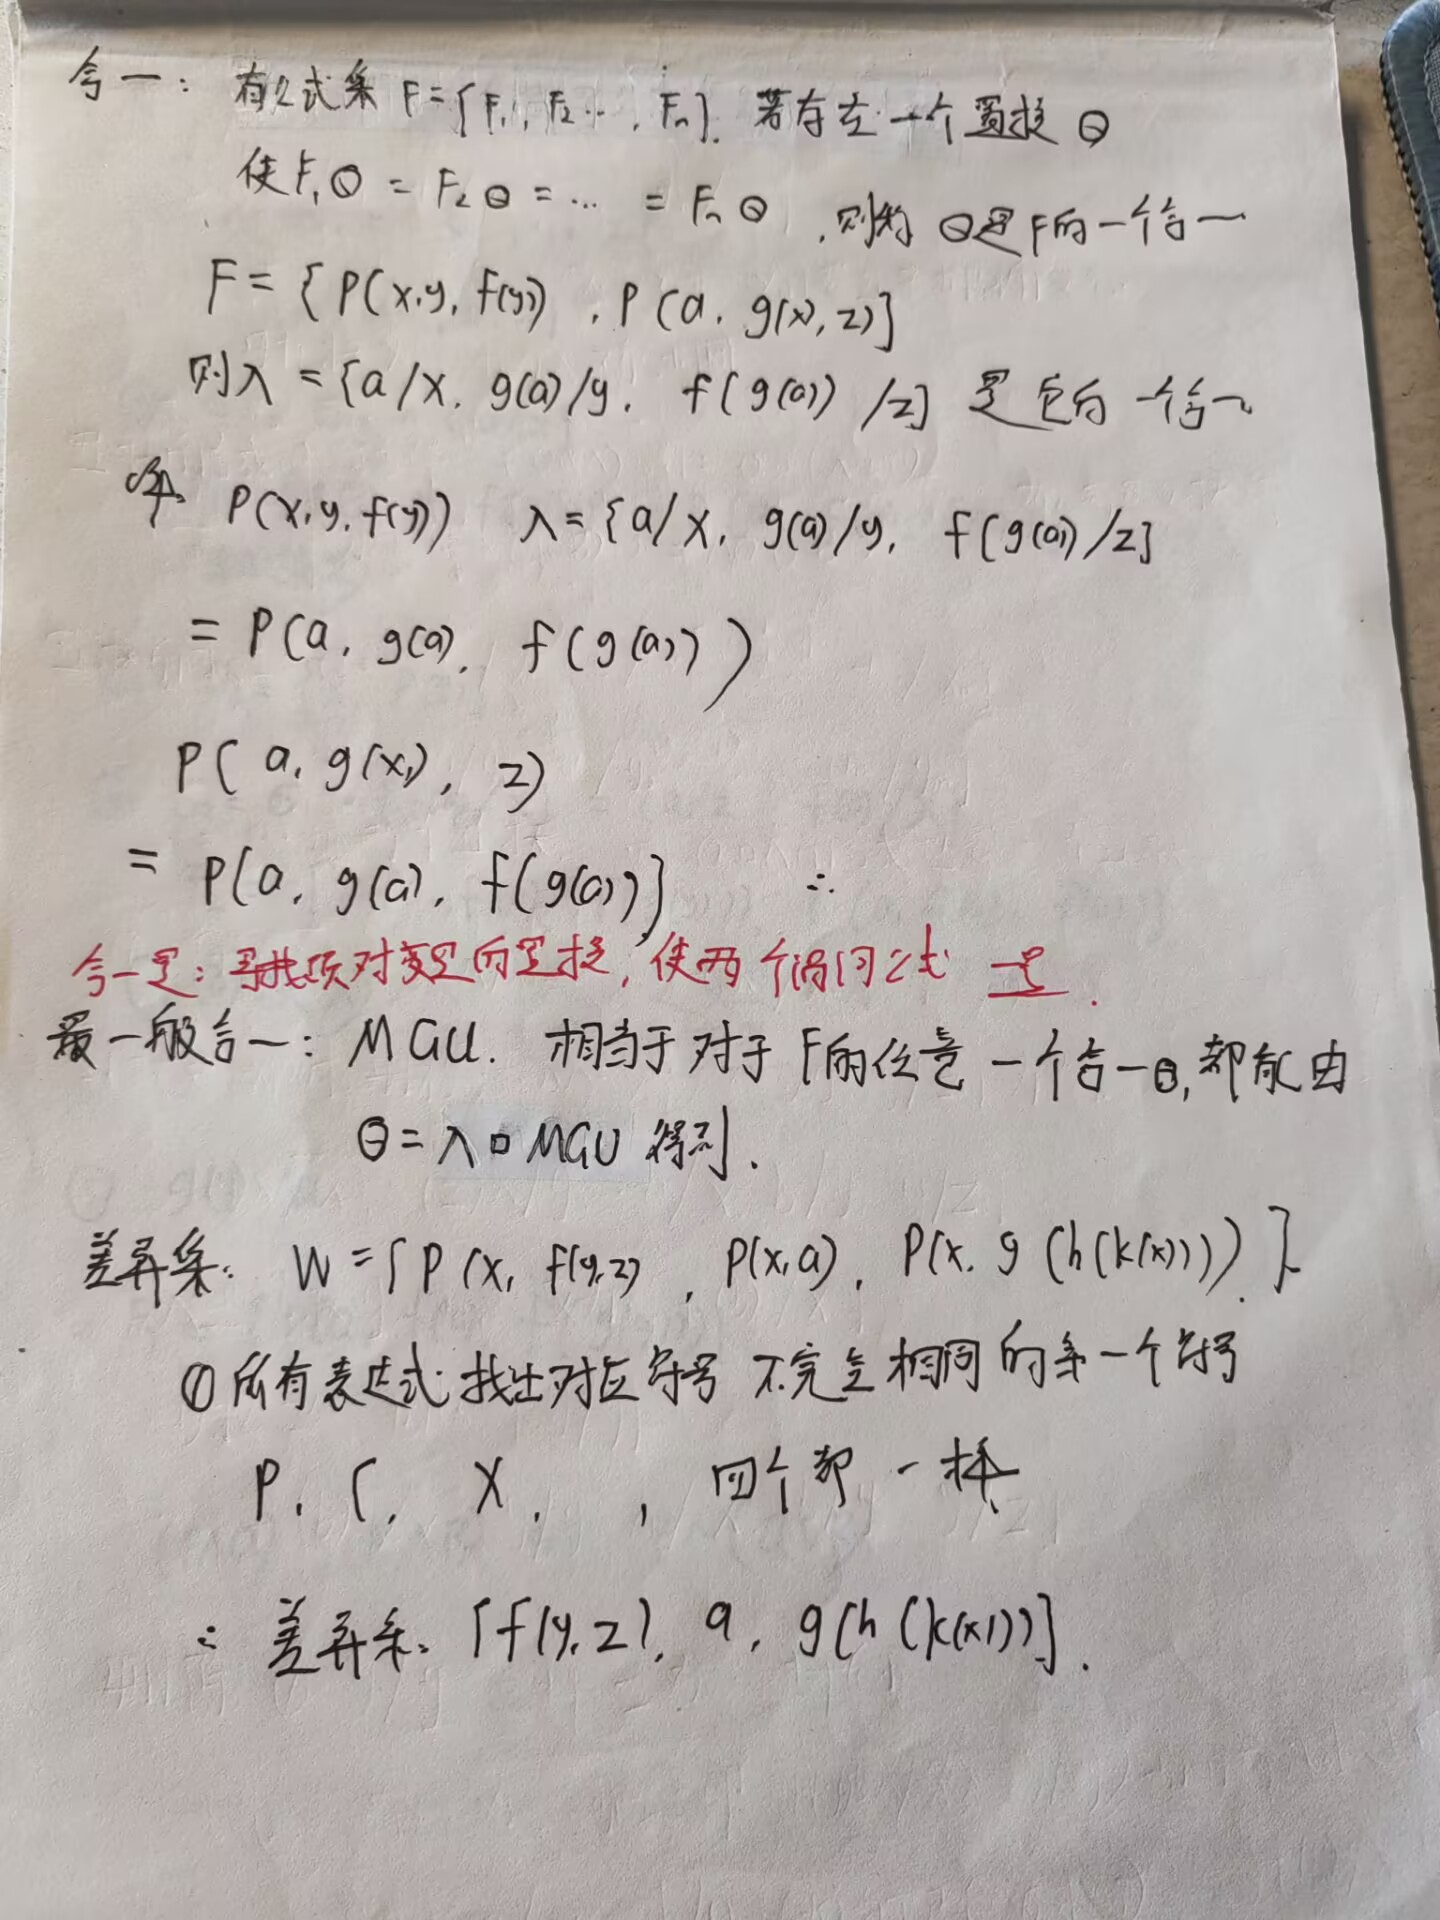 合一: 有公式集 F={F₁, F₂ …, Fn}. 若存在一个置换 θ
使F₁θ = F₂θ = … = Fnθ ,则称 θ是F的一个合一
F = {P(x,y, f(y)) , P(a, g(x), z)}
则λ = {a/x, g(a)/y, f(g(a)) /z} 是它的一个合一
P(x,y,f(y)) λ={a/x, g(a)/y, f(g(a))/z}
= P(a, g(a), f(g(a)))
P( a, g(x), z)
= P(a, g(a), f(g(a))] ∴
合一是: 寻找项对变量的置换, 使两个谓词公式 一致.
最一般合一: MGU. 相当于对于F的任意一个合一θ,都能由
θ=λ□MGU 得到.
差异集: W={P(x, f(y,z) , P(x,a), P(x, g(h(k(x)))) }.
①所有表达式找出对应符号不完全相同的第一个符号
P, (, X, , 四个都一样
∴ 差异集: {f(y,z), a, g(h(k(x)))}.